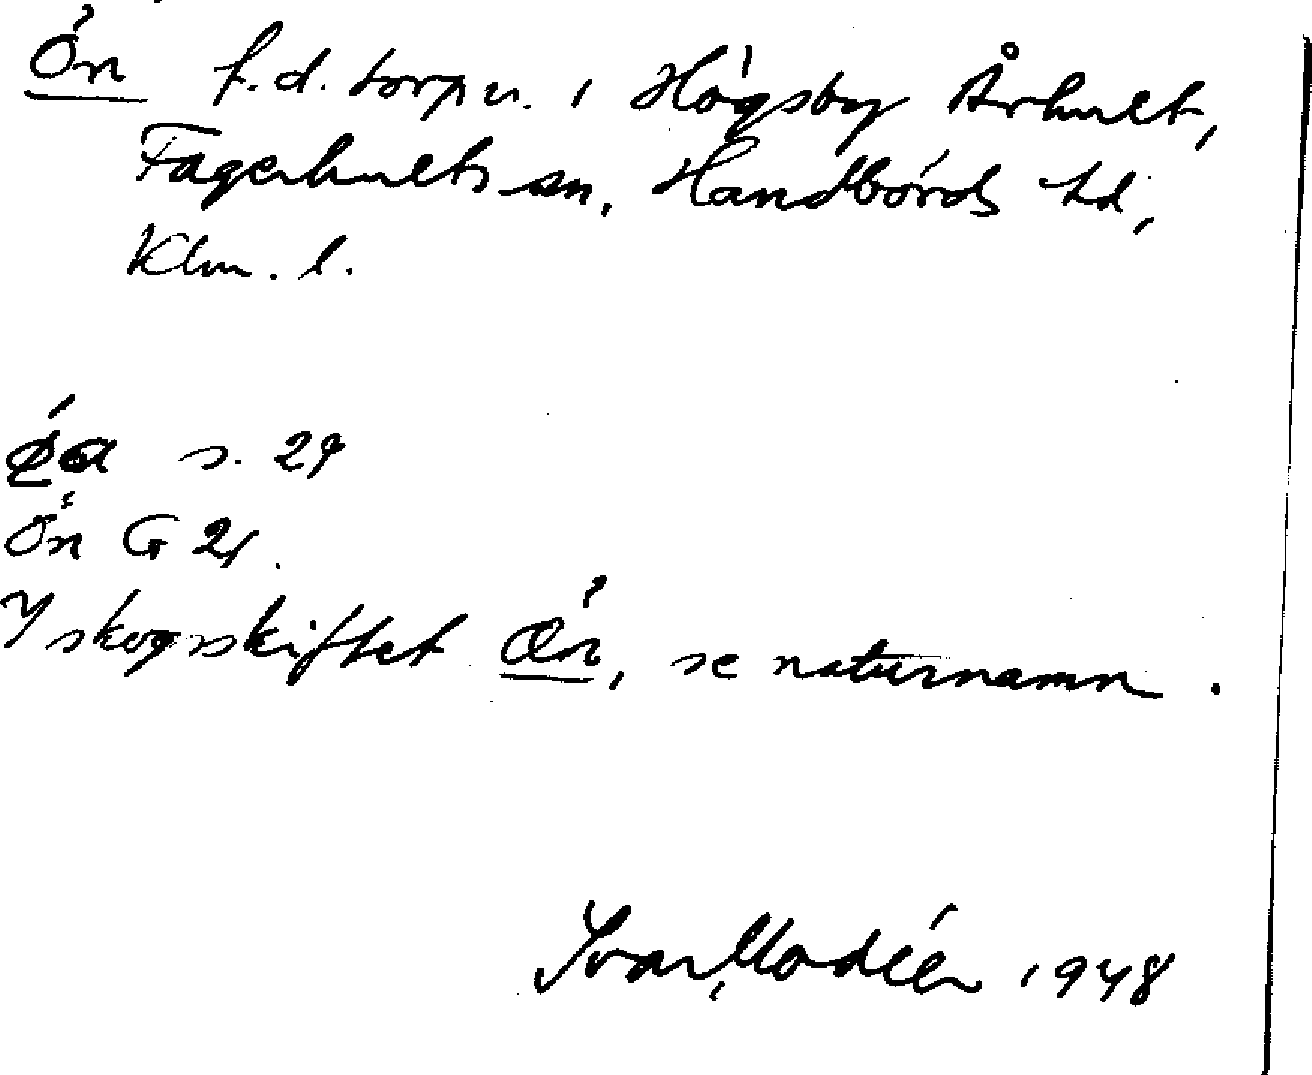 Ön f.d. torp u. i Högsby Århult,
Fagerhults sn, Handbörds hd,
Klm. l.
s. 29
Ön G 21.
I skogsskiftet Ön, se naturnamn.
Ivar Modéer 1948